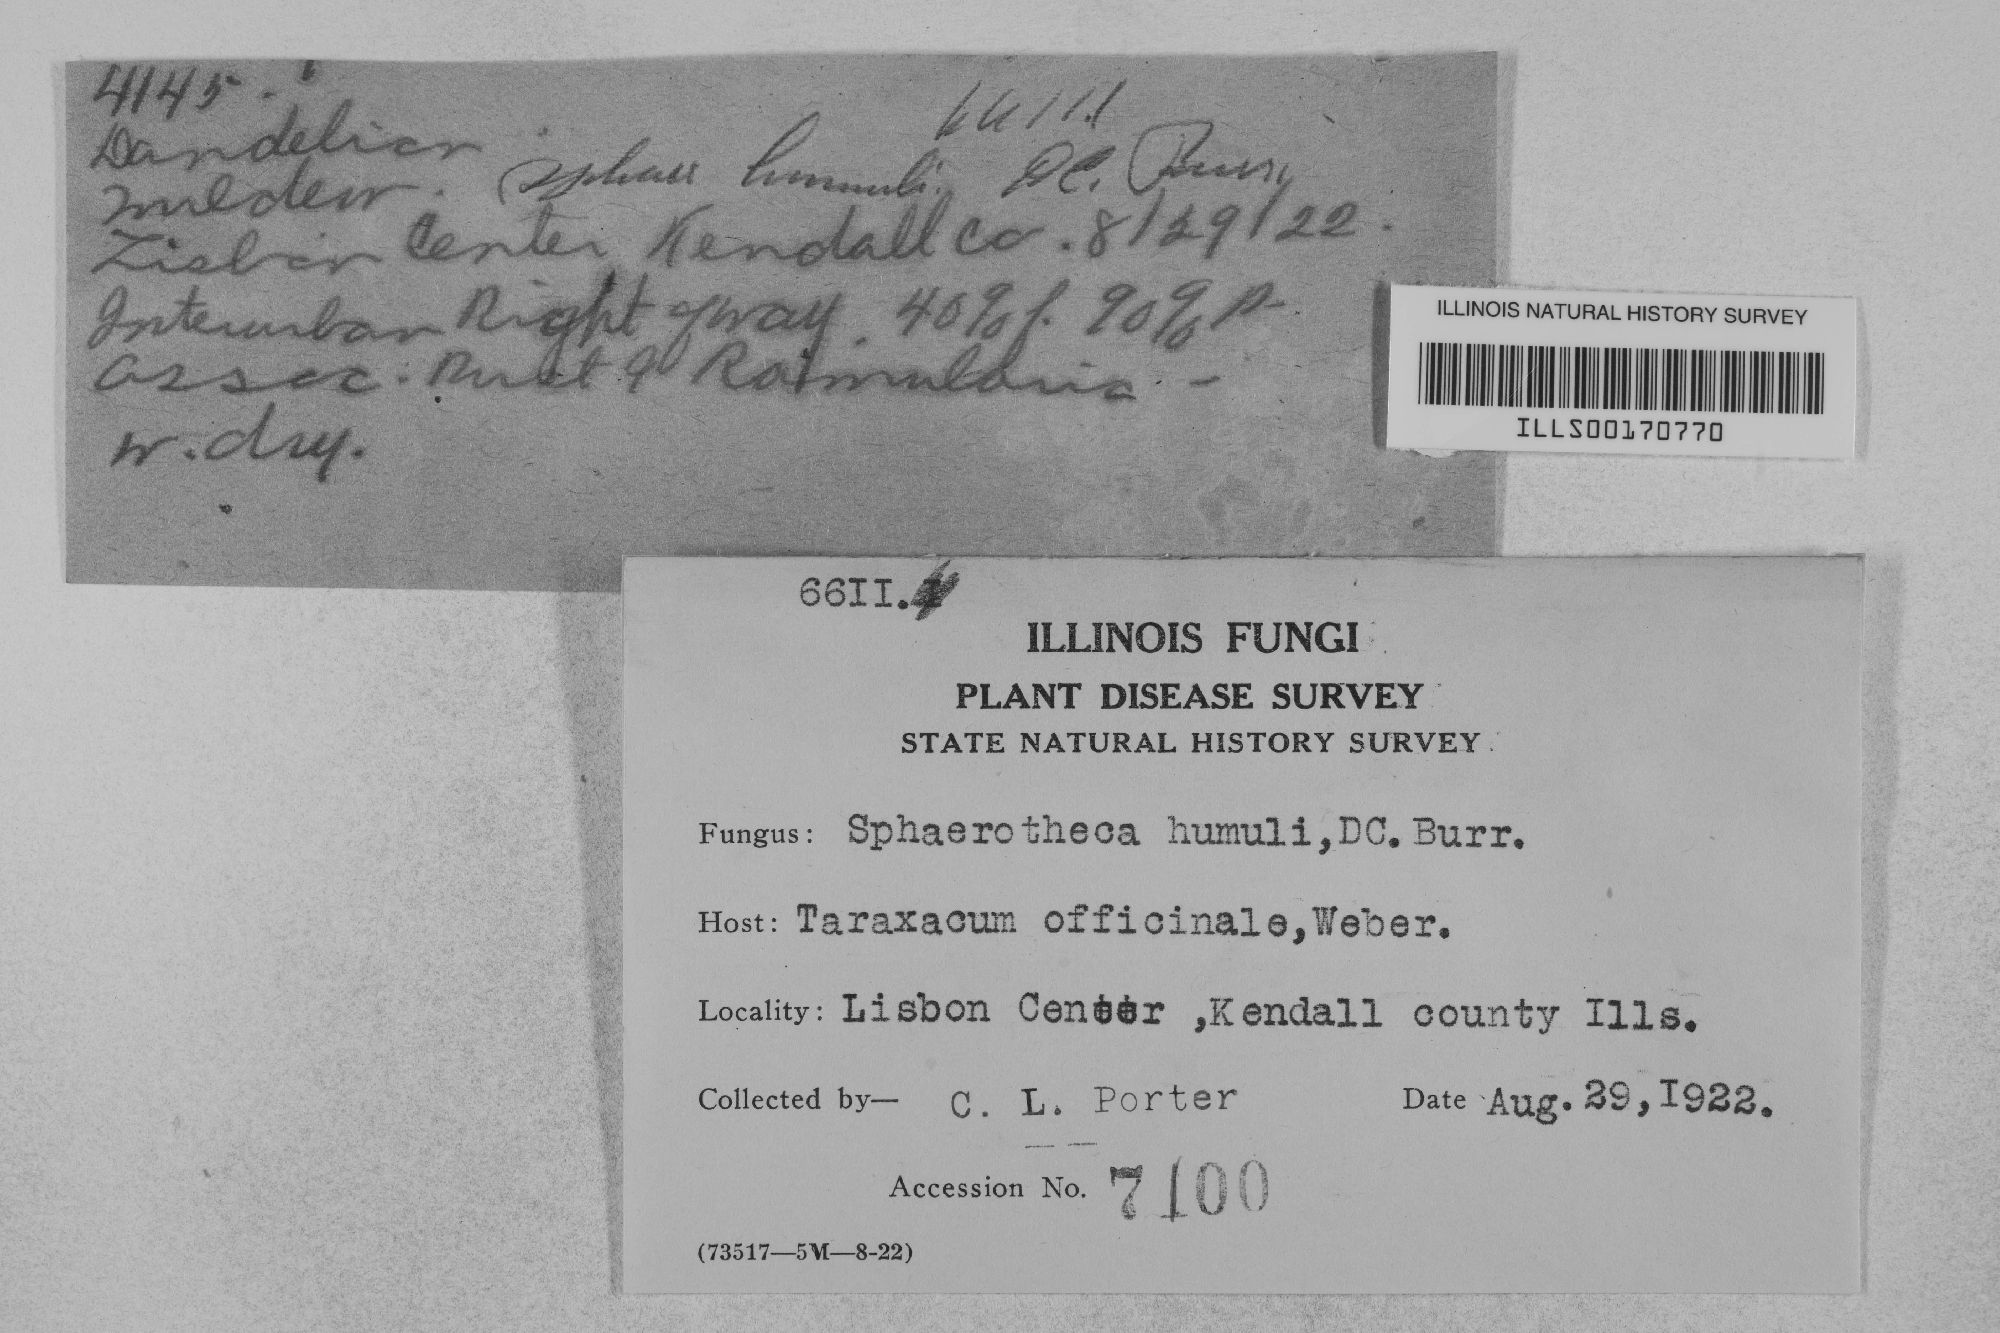 4145.
6611.1
Dandelion
mildew. Sphaer humuli. DC. Burr.
Lisbon Center Kendall Co. 8/29/22.
Interurban Right of way. 40% f. 90% p
assoc. Rust & Ramularia -
w. dry.
ILLINOIS NATURAL HISTORY SURVEY
ILLS00170770
66II.
ILLINOIS FUNGI
PLANT DISEASE SURVEY
STATE NATURAL HISTORY SURVEY
Fungus: Sphaerotheca humuli,DC. Burr.
Host: Taraxacum officinale,Weber.
Locality: Lisbon Center ,Kendall county Ills.
Collected by— C. L. Porter Date Aug. 29, I922.
Accession No. 7100
(73517—5M—8-22)